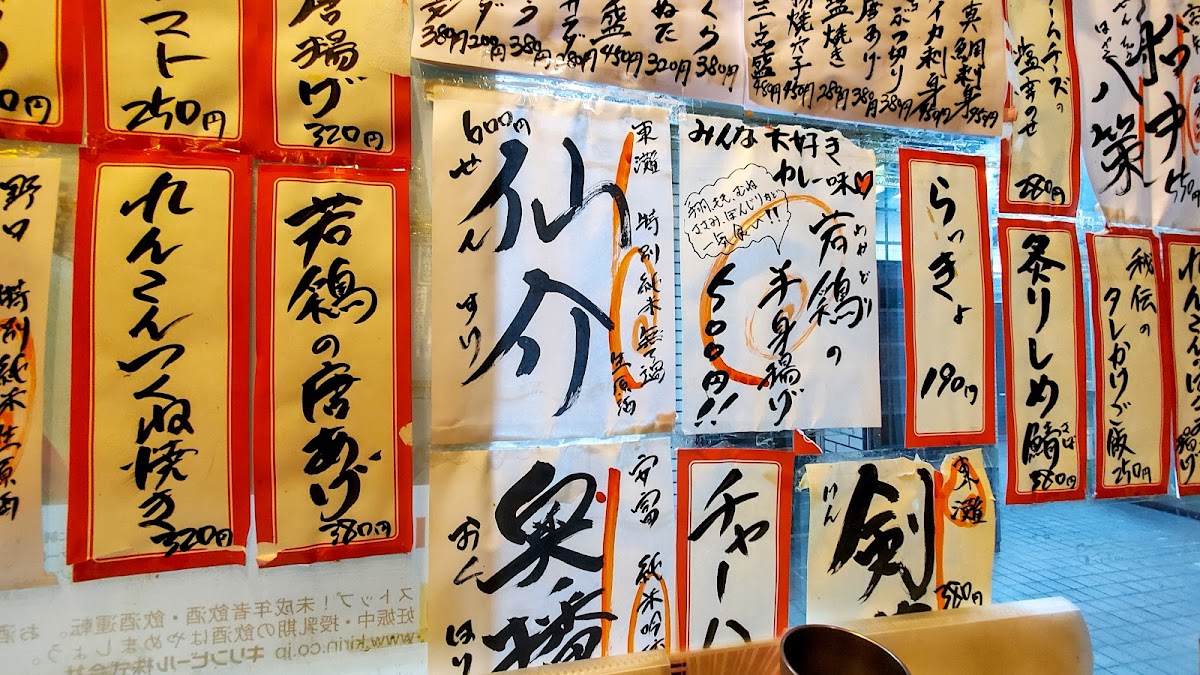 スト
250円
唐揚げ
320円
れんこんつくね焼き
320円
若鶏の唐あげ
380円
野口
特別純米生原酒
389円
200円
380円
280円
盛
450円
ぬた
320円
380円
三点盛
480円
焼穴子
450円
塩焼き
289円
唐あげ
380円
ぶつ切り
389円
イカ刺身
450円
真鯛刺身
450円
600円
せんすけ
仙介
東灘
特別純米無濾過
生原酒
みんな大好き
カレー味♥
若鶏の
わかどり
半身揚げ
500円!!
手羽、もも、むね
ささみ、ぼんじりなど
一気食い!!
らっきょ
190円
チーズの
塩辛のせ
380円
船中
八策
せんちゅう
はっさく
550円
炙りしめ鯖
さば
380円
秘伝の
タレかけご飯
250円
安富
純米吟
奥播
おくはり
チャーハ
東灘
剣
けん
380円
ストップ!未成年者飲酒・飲酒運転。
妊娠中・授乳期の飲酒はやめましょう。お酒
www.kirin.co.jp キリンビール株式会社